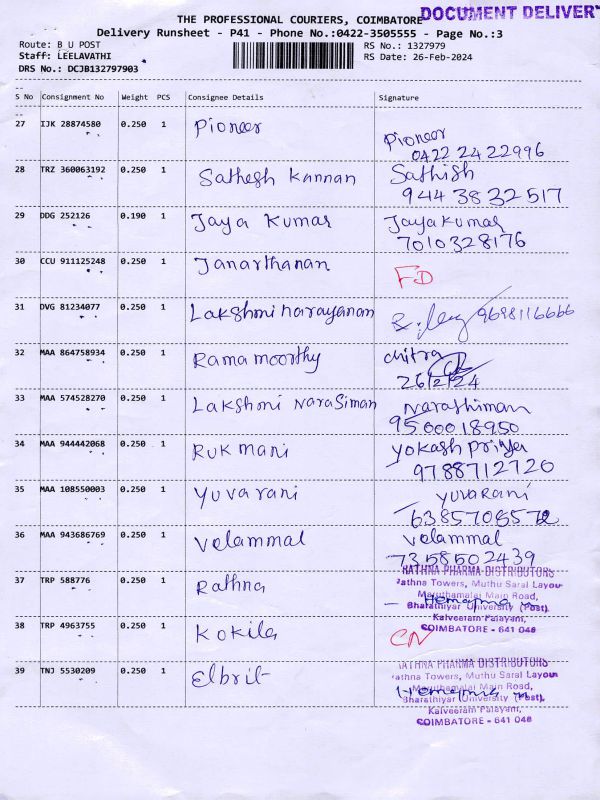 THE PROFESSIONAL COURIERS, COIMBATORE
DOCUMENT DELIVER
Delivery Runsheet - P41 - Phone No.:0422-3505555 - Page No.:3
Route: B U POST
RS No.: 1327979
Staff: LEELAVATHI
RS Date: 26-Feb-2024
DRS No.: DCJB132797903
S No Consignment No Weight PCS Consignee Details Signature
27 IJK 28874580 0.250 1 Pioneer Pioneer
0422 24 22996
28 TRZ 360063192 0.250 1 Sathesh Kannan Sathish
944 38 32 517
29 DDG 252126 0.190 1 Jaya Kumar Jayakumar
7010328176
30 CCU 911125248 0.250 1 Janarthanan FD
31 DVG 81234077 0.250 1 Lakshmi narayanan 9698116666
32 MAA 864758934 0.250 1 Rama moorthy chitra
26/2/24
33 MAA 574528270 0.250 1 Lakshmi NaraSiman Narashiman
95000 18950
34 MAA 944442068 0.250 1 Rukmani yokash priya
9788712720
35 MAA 108550003 0.250 1 yuvarani yuvarani
36 MAA 943686769 0.250 1 velammal velammal
7358502439
37 TRP 588776 0.250 1 Rathna RATHNA PHARMA DISTRIBUTORS
Rathna Towers, Muthu Saral Layou
Maruthamalai Main Road,
Bharathiyar University (Post),
Kalveeram Palayam,
COIMBATORE - 641 046
38 TRP 4963755 0.250 1 Kokila CN
39 TNJ 5530209 0.250 1 Elbrit RATHNA PHARMA DISTRIBUTORS
Rathna Towers, Muthu Saral Layout
Maruthamalai Main Road,
Bharathiyar University (Post)
Kalveeram Palayam,
COIMBATORE - 641 046